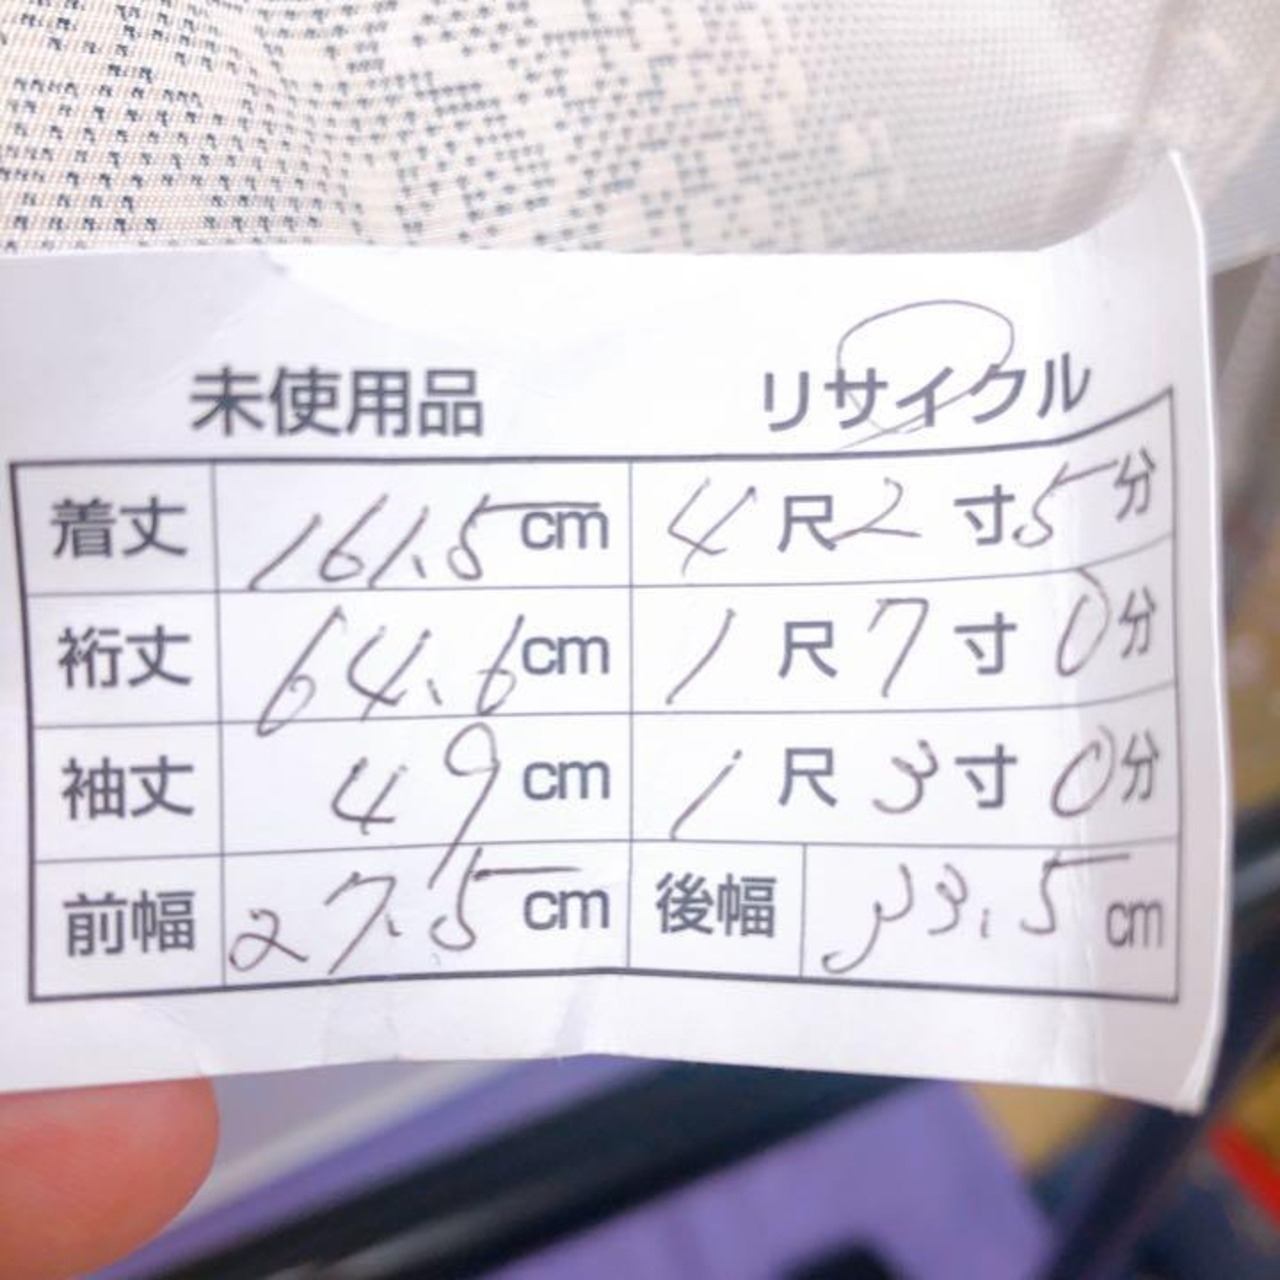 未使用品 リサイクル
着丈 161.5cm 4尺2寸5分
裄丈 64.6cm 1尺7寸0分
袖丈 49cm 1尺3寸0分
前幅 27.5cm 後幅 33.5cm